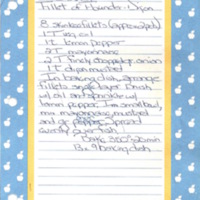 Fillet of Flounder - Dijon
8 flounder fillets (approx 2 pds)
1 T veg. oil
1 t lemon pepper
2 T mayonnaise
2 T finely chopped gr. onion
1 t dijon mustard
In broiling dish arrange
fillets single layer. Brush
w/ oil and sprinkle w/
lemon pepper. In small bowl,
mix mayonnaise, mustard
and spread
evenly over fish
350°
9 broiling dish